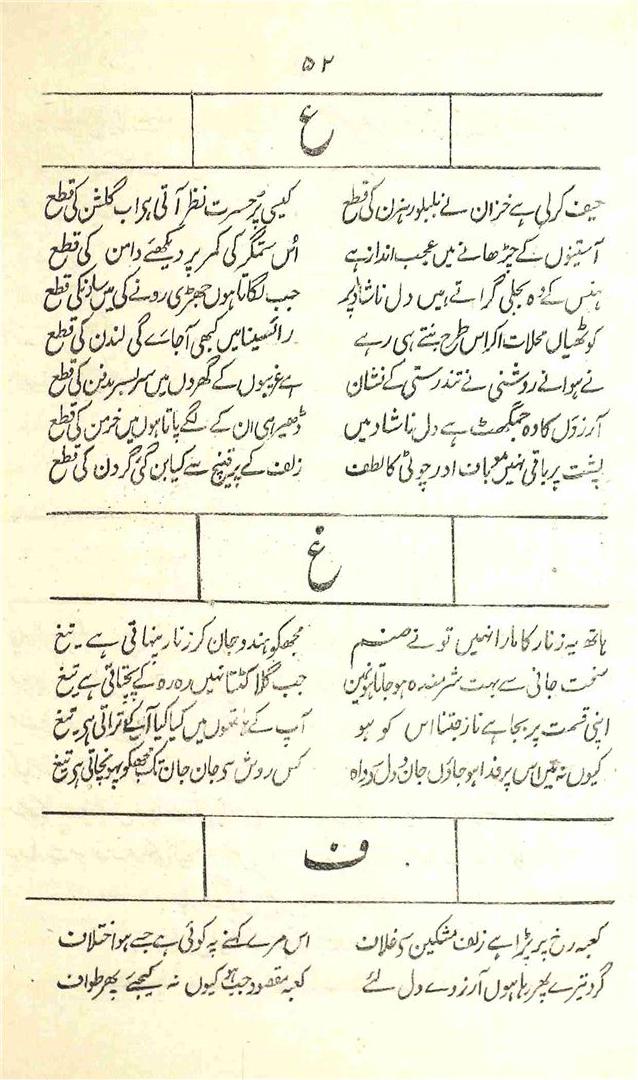 ۵۲
ع
حیف کرلی ہے خزان نے بلبلو رہزن کی قطع کیسی پُر حسرت نظر آتی ہر اب گلشن کی قطع
آستینوں کے چڑھانے میں عجب انداز ہے اُس ستمگر کی کمر پر دیکھئے دامن کی قطع
ہنس کے وہ بجلی گراتے ہیں دل ناشاد پر جب لگاتا ہوں جھڑی رونے کی میں کی قطع
کوٹھیاں محلات اگر اس طرح بنتے ہی رہے رائسینا میں کبھی آجائے گی لندن کی قطع
نے ہوا نے روشنی نے تندرستی کے نشان ہے غریبوں کے گھروں میں سر بسر مدفن کی قطع
آرزؤں کا وہ جمگھٹ ہے دل ناشاد میں ڈھیر اہی ان کے لگے پاتا ہوں میں خرمن کی قطع
پشت پر باقی نہیں موباف اور چوٹی کا لطف زلف کے پر قینچ سے کیا بن گئی گردن کی قطع
غ
ہاتھ یہ زنار کا مارا نہیں تو نے صنم مجھکو ہندو جان کر زنار پنہاتی ہے ۔ تیغ
سخت جانی سے بہت شرمندہ ہو جاتا ہوں میں جب گلا کٹتا نہیں رہ رہ کے پچتاتی ہے تیغ
اپنی قسمت پر بجا ہے ناز جتنا اس کو ہو آپ کے ہاتھوں میں کیا کیا آپ کو تراتی ہی ۔ تیغ
کیوں نہ میں اس پر فدا ہو جاؤں جان و دل سے واہ کس روش سی جان جان تک مجھکو پہونچاتی ہی تیغ
ف
کعبہ رخ پر پڑا ہے زلف مشکین کا غلاف اس مرے کہنے پہ کوئی ہے جسے ہو اختلاف
گرد تیرے پھر رہا ہوں آرزوے دل لئے کعبہ مقصود جب ہو کیوں نہ کیجئے پھر طواف